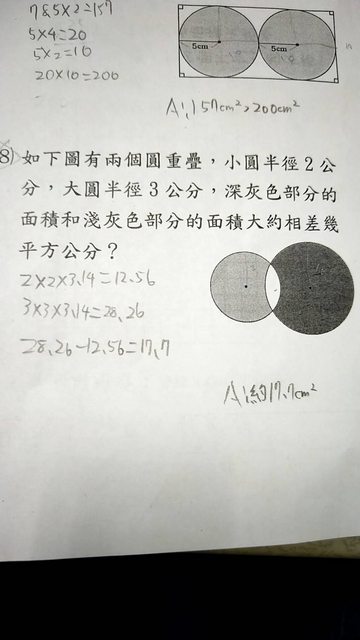 78.5×2=157
5×4=20
5×2=10
20×10=200
5cm 5cm
A:157cm²,200cm²
8) 如下圖有兩個圓重疊，小圓半徑 2 公
分，大圓半徑 3 公分，深灰色部分的
面積和淺灰色部分的面積大約相差幾
平方公分？
2×2×3.14=12.56
3×3×3.14=28.26
28.26-12.56=17.7
A:約17.7cm²